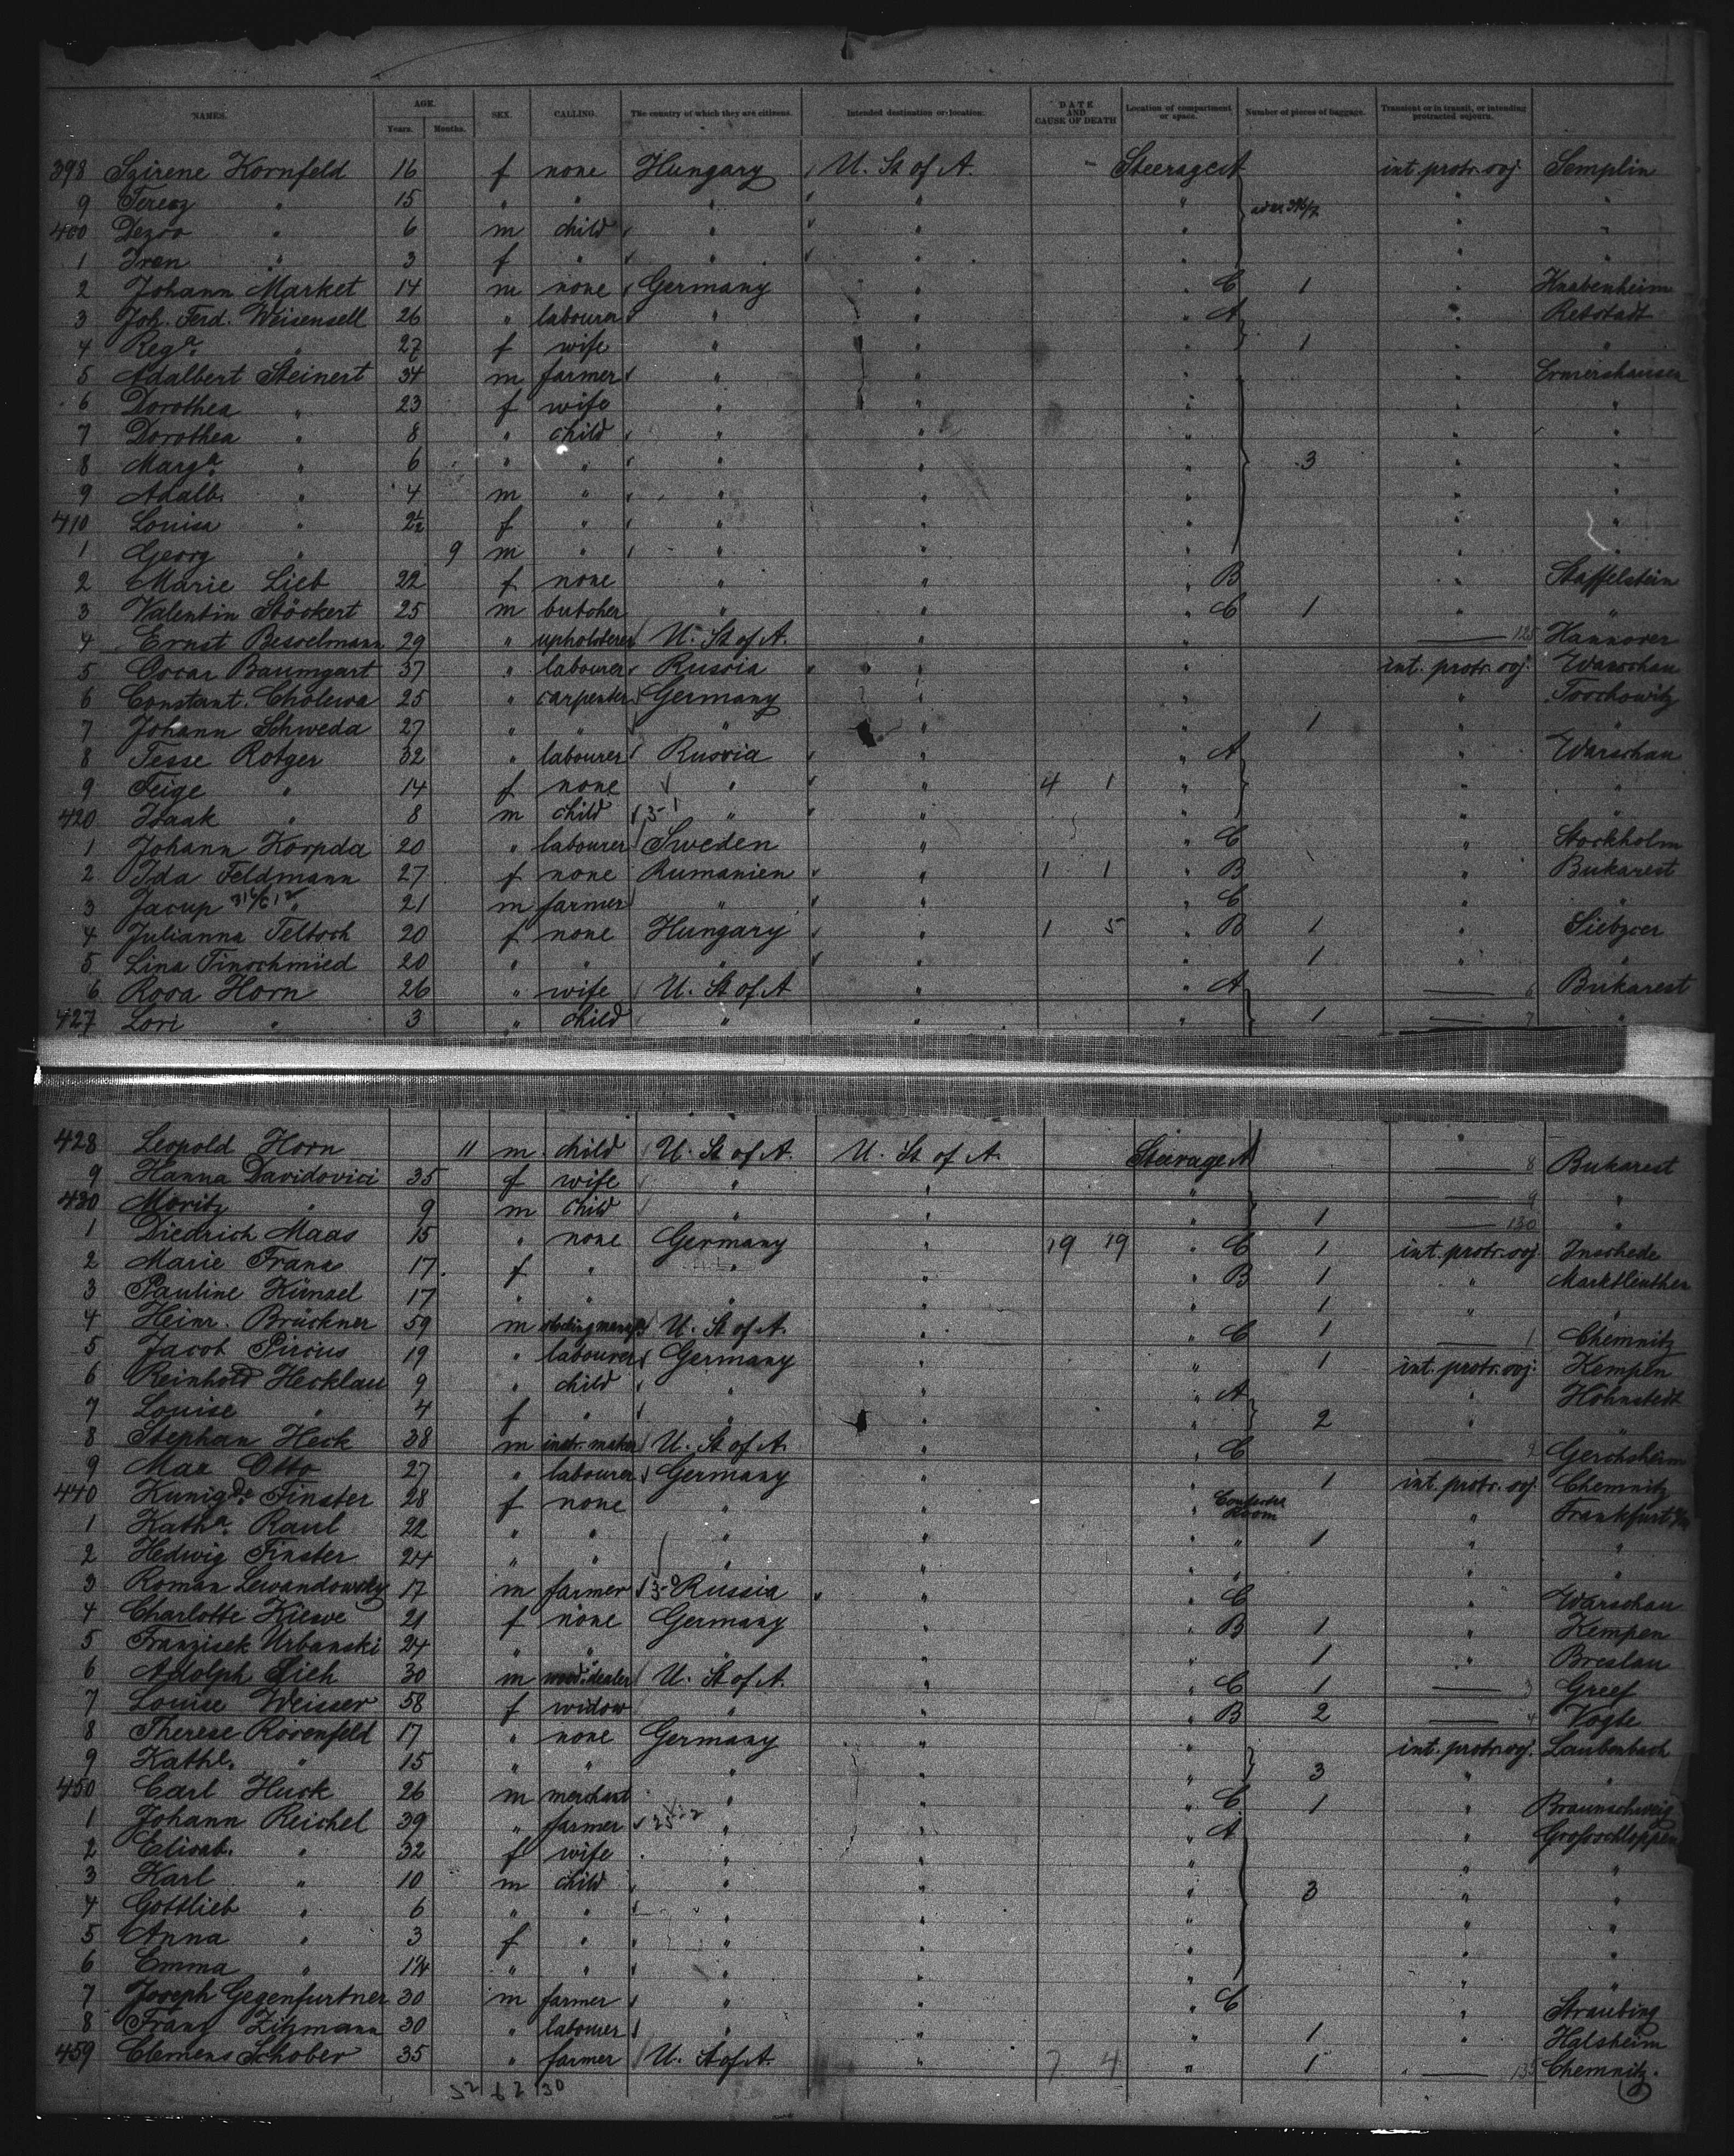 NAMES. AGE. SEX. CALLING. The country of which they are citizens. Intended destination or location. DATE AND CAUSE OF DEATH Location of compartment or space. Number of pieces of baggage. Transient or in transit, or intending protracted sojourn.
Years. Months.
398 Szirene Kornfeld 16 f none Hungary U. St of A. Steerage A int. protr. soj. Semplin
9 Teresz " 15 " " " " " " "
400 Dezso " 6 m child " " " " "
1 Iren " 3 f " " " " " "
2 Johann Market 14 m none Germany " " C 1 " Knabenheim
3 Joh. Ferd. Weisensell 26 " labourer " " " A " Retstadt
4 Rega. " 27 f wife " " " 1 " "
5 Adalbert Steinert 34 m farmer " " " " Ermershausen
6 Dorothea " 23 f wife " " " " "
7 Dorothea " 8 " child " " " " "
8 Marga. " 6 " " " " " 3 " "
9 Adalb. " 4 m " " " " " "
410 Louisa " 2½ f " " " " " "
1 Georg " 9 m " " " " " "
2 Marie Lieb 22 f none " " " B " Staffelstein
3 Valentin Stöckert 25 m butcher " " " C 1 " "
4 Ernst Besselmann 29 " upholsterer U. St of A. " " 125 Hannover
5 Oscar Baumgart 37 " labourer Russia " " int. protr. soj. Warschau
6 Constant. Cholewa 25 " carpenter Germany " " " Toschowitz
7 Johann Schweda 27 " " " " " 1 " "
8 Tesse Rotger 32 " labourer Russia " " A " Warschau
9 Feige " 14 f none " " 4 1 " " "
420 Isaak " 8 m child " " " " "
1 Johann Korpda 20 " labourer Sweden " " C " Stockholm
2 Ida Feldmann 27 f none Rumanien " 1 1 " B " Bukarest
3 Jacup " 21 m farmer " " " C " "
4 Julianna Teltsch 20 f none Hungary " 1 5 " B 1 "
5 Lina Tinschmied 20 " " " " " 1 " "
6 Rosa Horn 26 " wife U. St of A " " A 6 Bukarest
427 Lori " 3 " child " " " 1 7 "
428 Leopold Horn 11 m child U. St of A. U. St of A. Steerage A 8 Bukarest
9 Hanna Davidovici 35 f wife " " " 9 "
430 Moritz " 9 m child " " " 1 130 "
1 Diedrich Maas 15 " none Germany " 19 19 " C 1 int. protr. soj. Inschede
2 Marie Franz 17 f " " " " B 1 " Marktleuthen
3 Pauline Künzel 17 " " " " " 1 " "
4 Heinr. Brückner 59 m U. St of A. " " C 1 1 Chemnitz
5 Jacob Pircus 19 " labourer Germany " " 1 int. protr. soj. Kempen
6 Reinhold Hecklau 9 " child " " " A " Hohnstedt
7 Louise " 4 f " " " " 2 " "
8 Stephan Heck 38 m instr. maker U. St of A. " " C 2 Gerchsheim
9 Max Otto 27 " labourer Germany " " 1 int. protr. soj. Chemnitz
440 Kunigde. Finster 28 f none " " " Room " Frankfurt
1 Katha. Raul 22 " " " " " " 1 " "
2 Hedwig Finster 24 " " " " " " " "
3 Roman Lewandowsky 17 m farmer Russia " " C " Warschau
4 Charlotte Kiewe 21 f none Germany " " B 1 " Kempen
5 Franzisek Urbanski 24 " " " " " 1 " Breslau
6 Adolph Sieh 30 m wood dealer U. St of A. " " C 1 3 Greef
7 Louise Weisser 58 f widow " " " B 2 4 Vogte
8 Therese Rosenfeld 17 " none Germany " " int. protr. soj. Laubenbach
9 Kathe. " 15 " " " " " 3 " "
450 Carl Huck 26 m merchant " " " C 1 " Braunschweig
1 Johann Reichel 39 " farmer " " " A " Grosschloppen
2 Elisab. " 32 f wife " " " " "
3 Karl " 10 m child " " " 3 " "
4 Gottlieb " 6 " " " " " " "
5 Anna " 3 f " " " " " "
6 Emma " 1¾ " " " " " " "
7 Joseph Gegenfurtner 30 m farmer " " " C " Straubing
8 Franz Zitzmann 30 " labourer " " " 1 " Halsheim
459 Clemens Schober 35 " farmer U. St of A. " 7 4 " 1 135 Chemnitz.
52 62 30